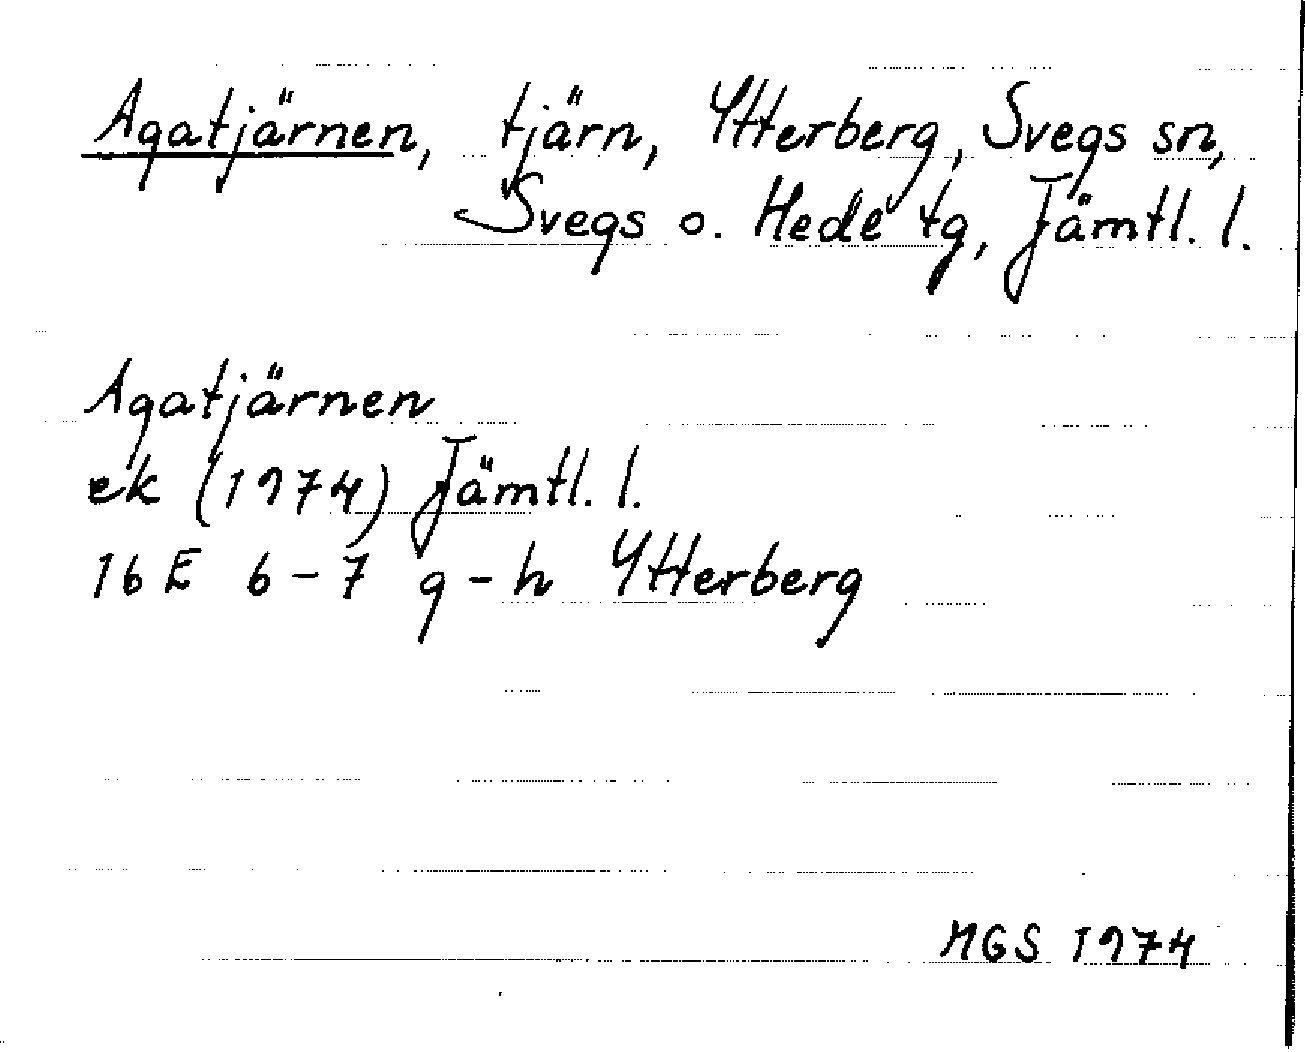 Agatjärnen, tjärn, Ytterberg, Svegs sn,
Svegs o. Hede tg, Jämtl. l.
Agatjärnen
ek (1974) Jämtl. l.
16 E 6-7 g-h Ytterberg
MGS 1974